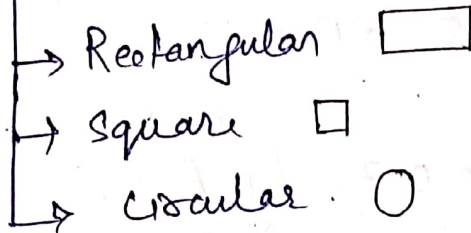 Rectangular
Square
Circular.